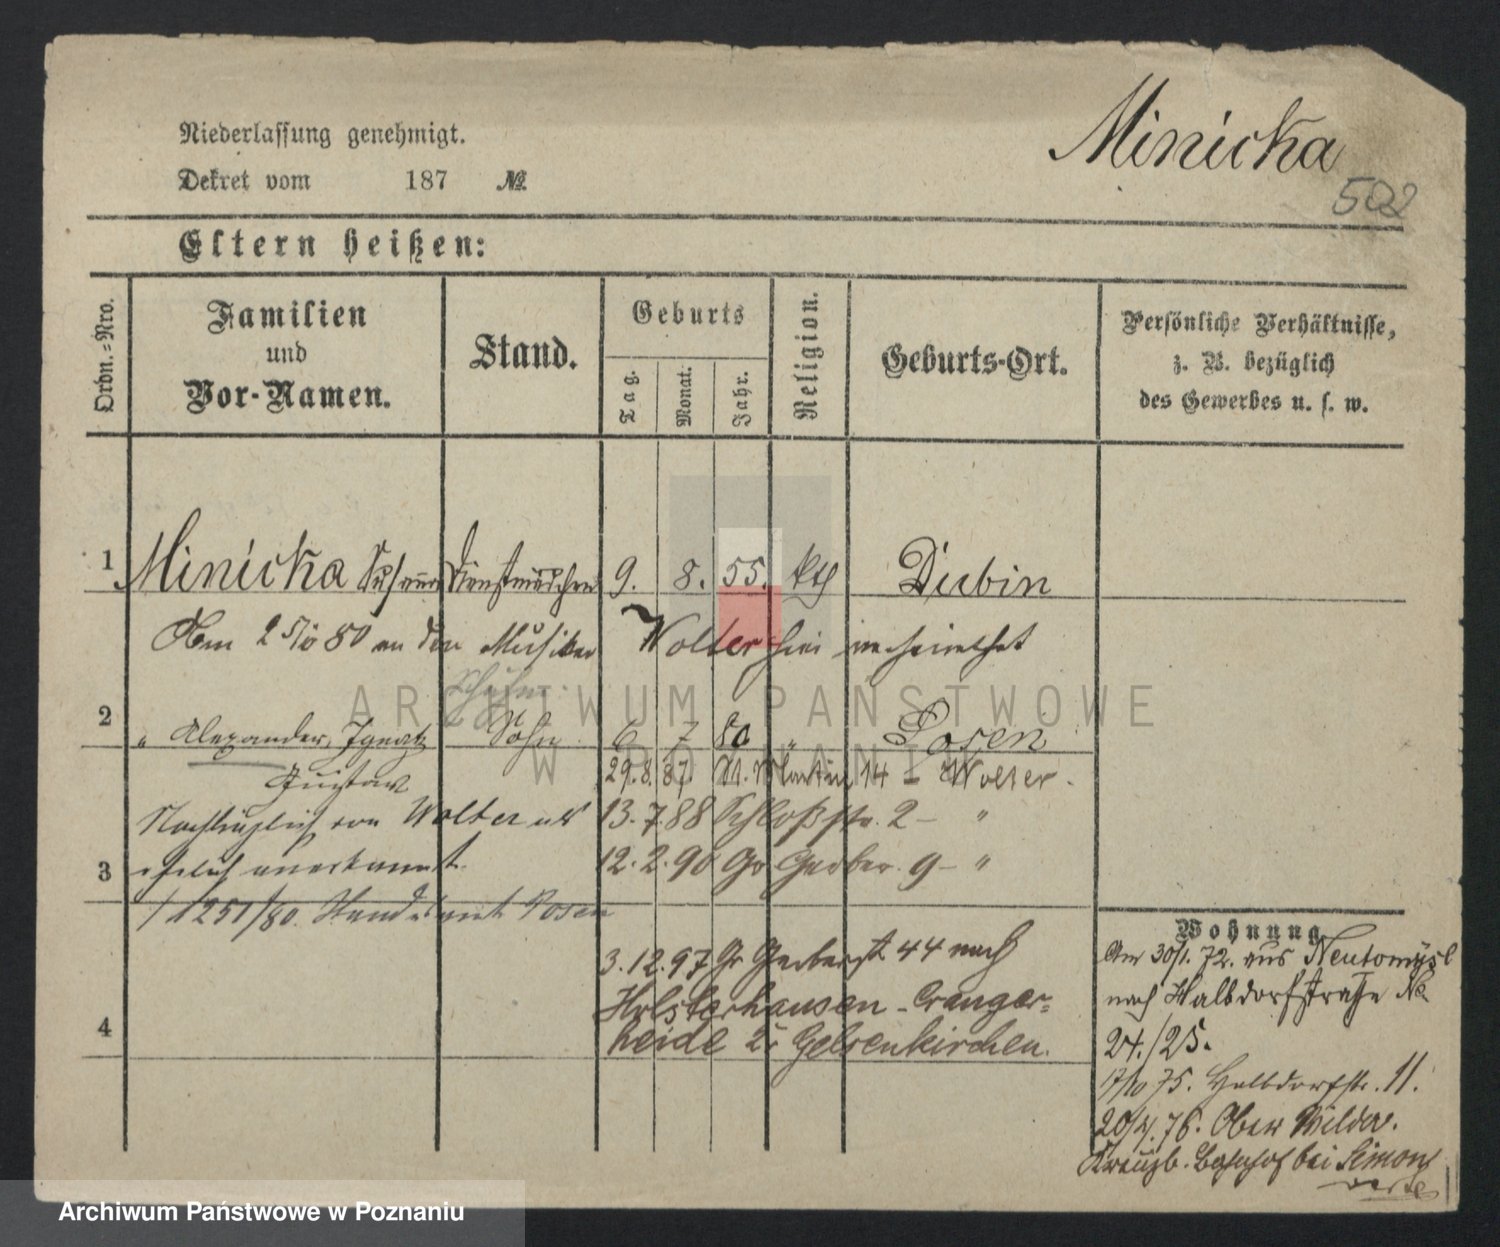 Niederlassung genehmigt.
Dekret vom 187 №
Minicka
502
Eltern heißen:
Ordn.-Nro.
Familien
und
Vor-Namen.
Stand.
Geburts
Tag.
Monat.
Jahr.
Religion.
Geburts-Ort.
Persönliche Verhältnisse,
z. B. bezüglich
des Gewerbes u. s. w.
1 Minicka Susanna Dienstmädchen 9. 8. 55. kth Dubin
Am 2 5/10 80 an den Musiker Wolter hier verheirathet
2 " Alexander, Ignatz Sohn 6 7 80 " Posen
Gustav
29.8.87. St. Martin 14 – Wolter.
Nachträglich von Wolter als
13.7.88 Schloßstr. 2 – "
3 ehelich anerkannt.
12.2.90 Gr Gerber. 9 – "
/ 1251/80. Standesamt Posen
3.12.97 Gr Gerberst 44 nach
Holsterhausen - Cranger-
4 heide Kr Gelsenkirchen.
Wohnung
Am 30/1. 72. aus Neutomysl
nach Halbdorfstraße No
24./25.
17/10 75. Halbdorfstr. 11.
20/4. 76. Ober Wilda.
Kreuzb. Bahnhof bei Simon
ARCHIWUM PAŃSTWOWE
W POZNANIU
Archiwum Państwowe w Poznaniu